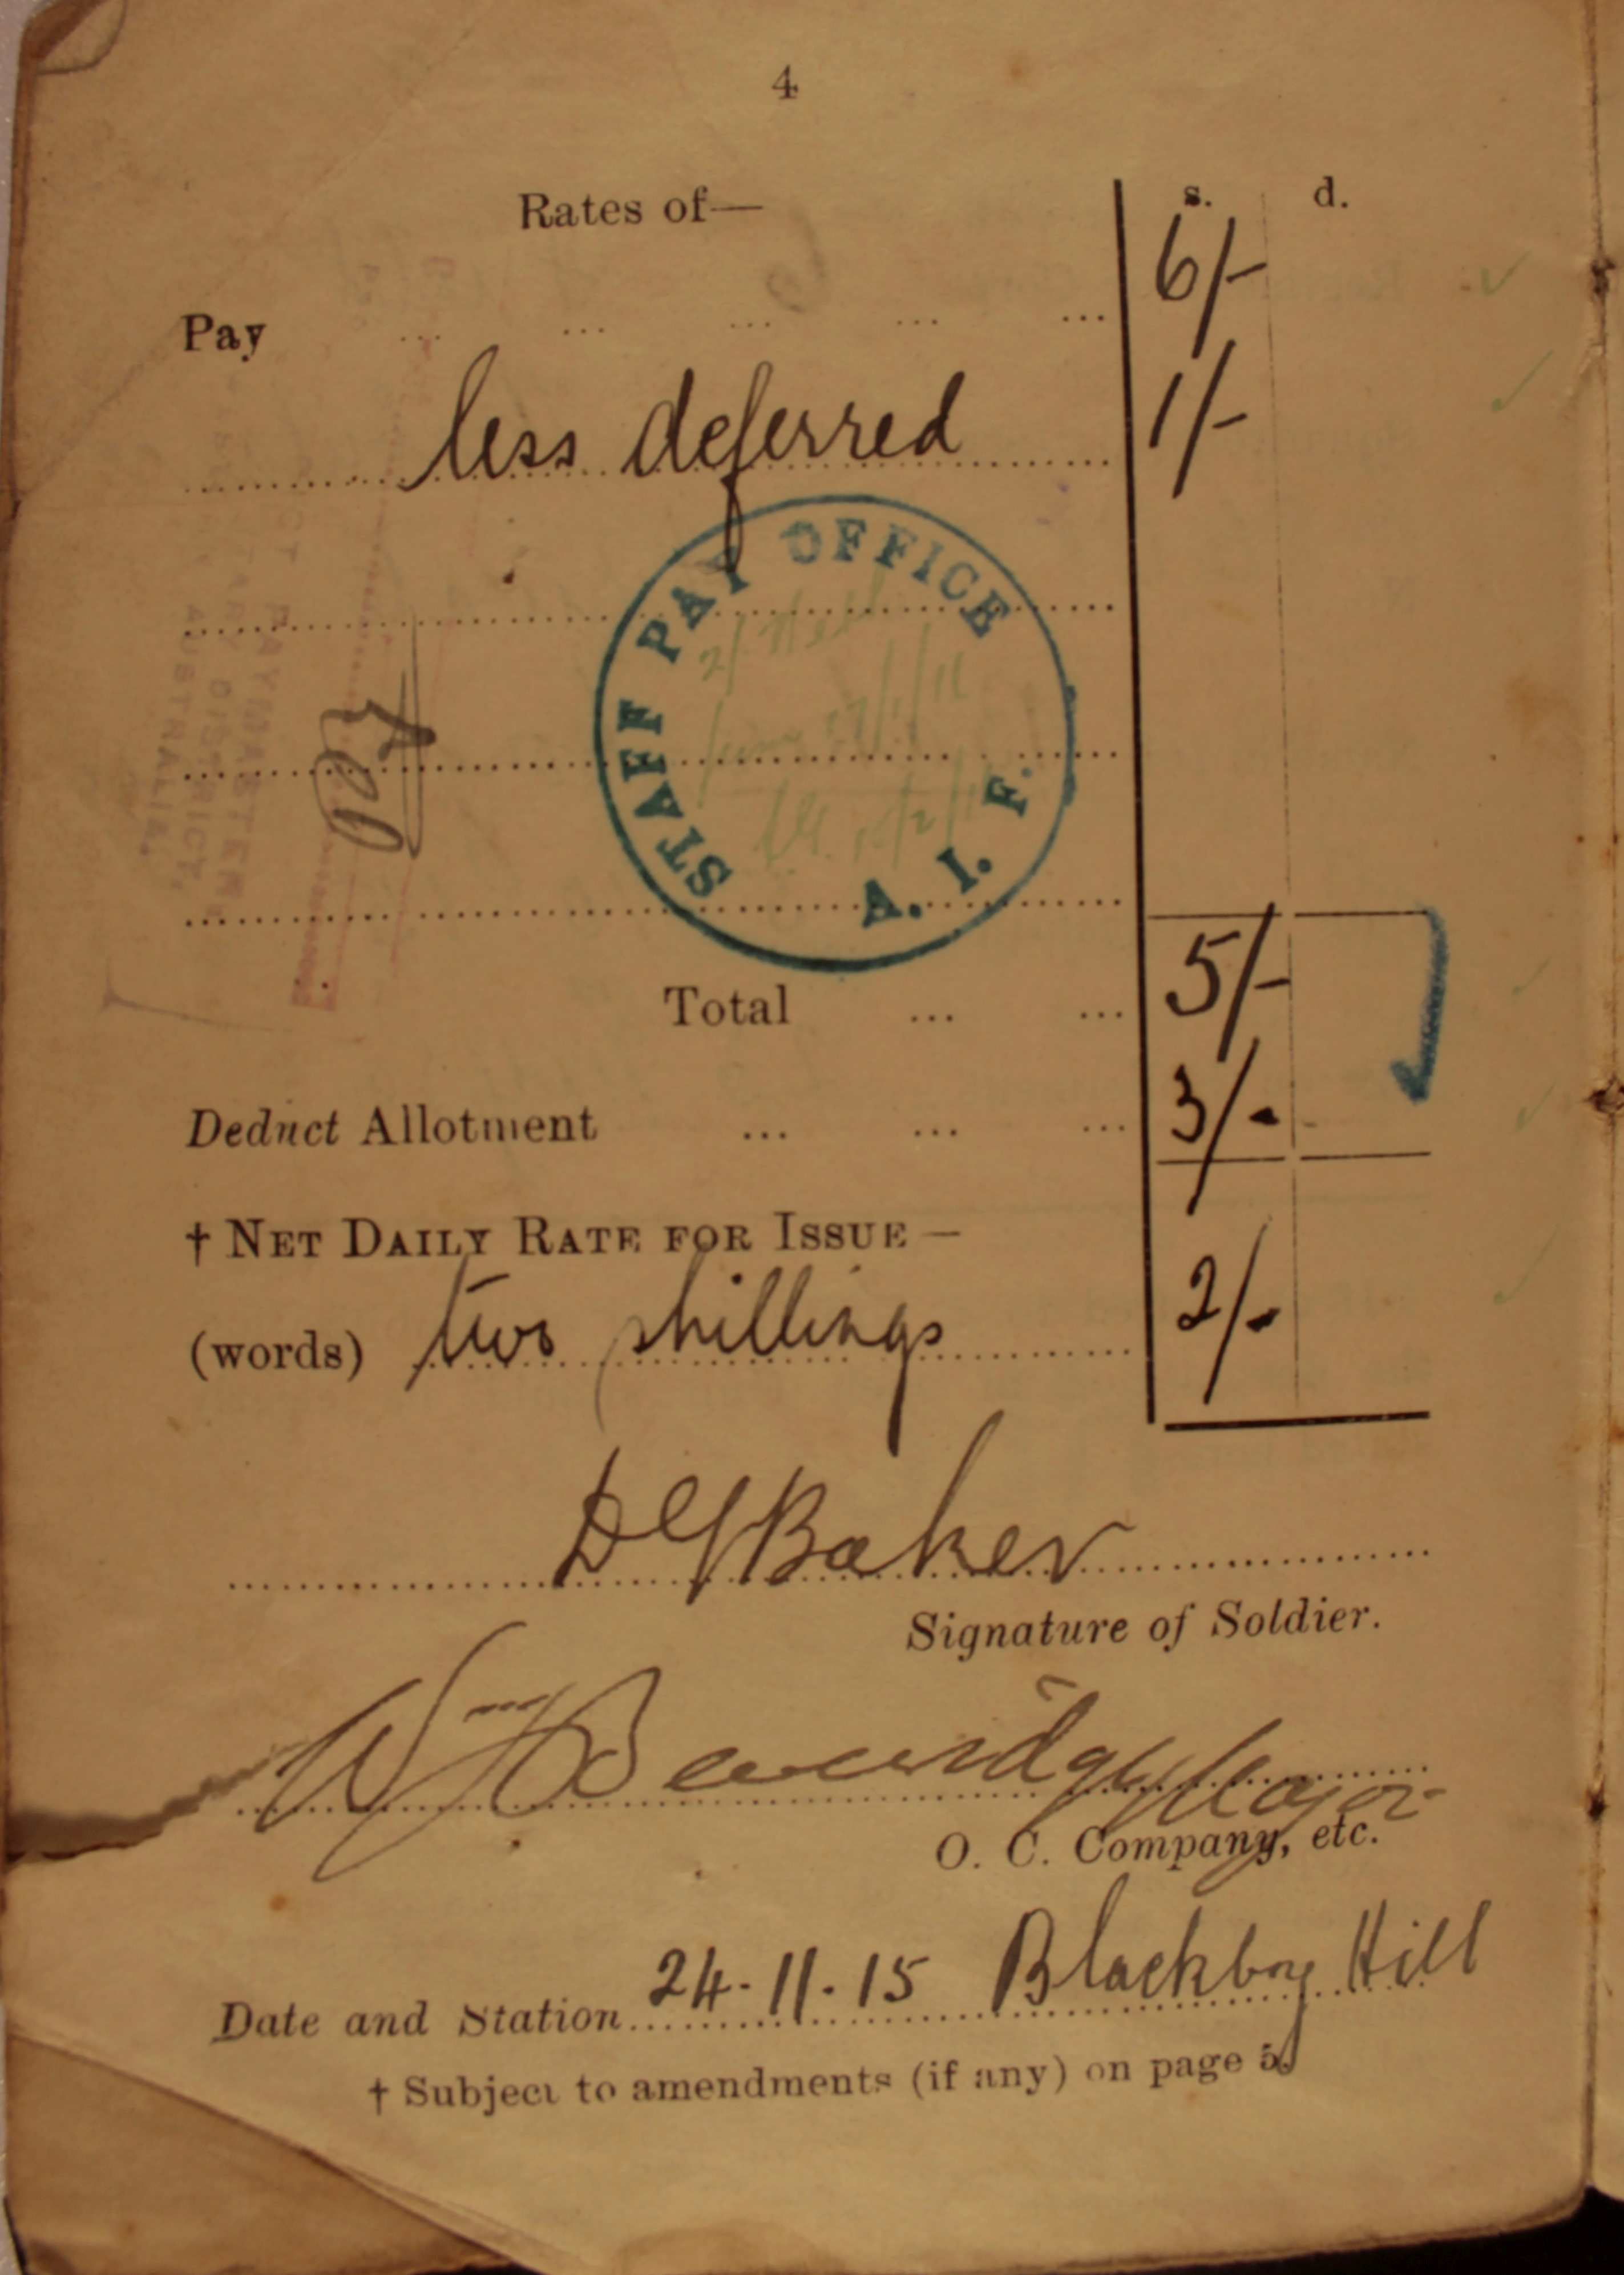 4
Rates of— s. d.
Pay ... ... ... ... ... 6/-
less deferred 1/-
STAFF PAY OFFICE
A. I. F.
PAYMASTER
DISTRICT,
AUSTRALIA.
Total ... ... 5/-
Deduct Allotment ... ... ... 3/-
† NET DAILY RATE FOR ISSUE —
(words) two shillings 2/-
D G Baker
Signature of Soldier.
Major
O. C. Company, etc.
Date and Station 24-11-15 Blackboy Hill
† Subject to amendments (if any) on page 5.